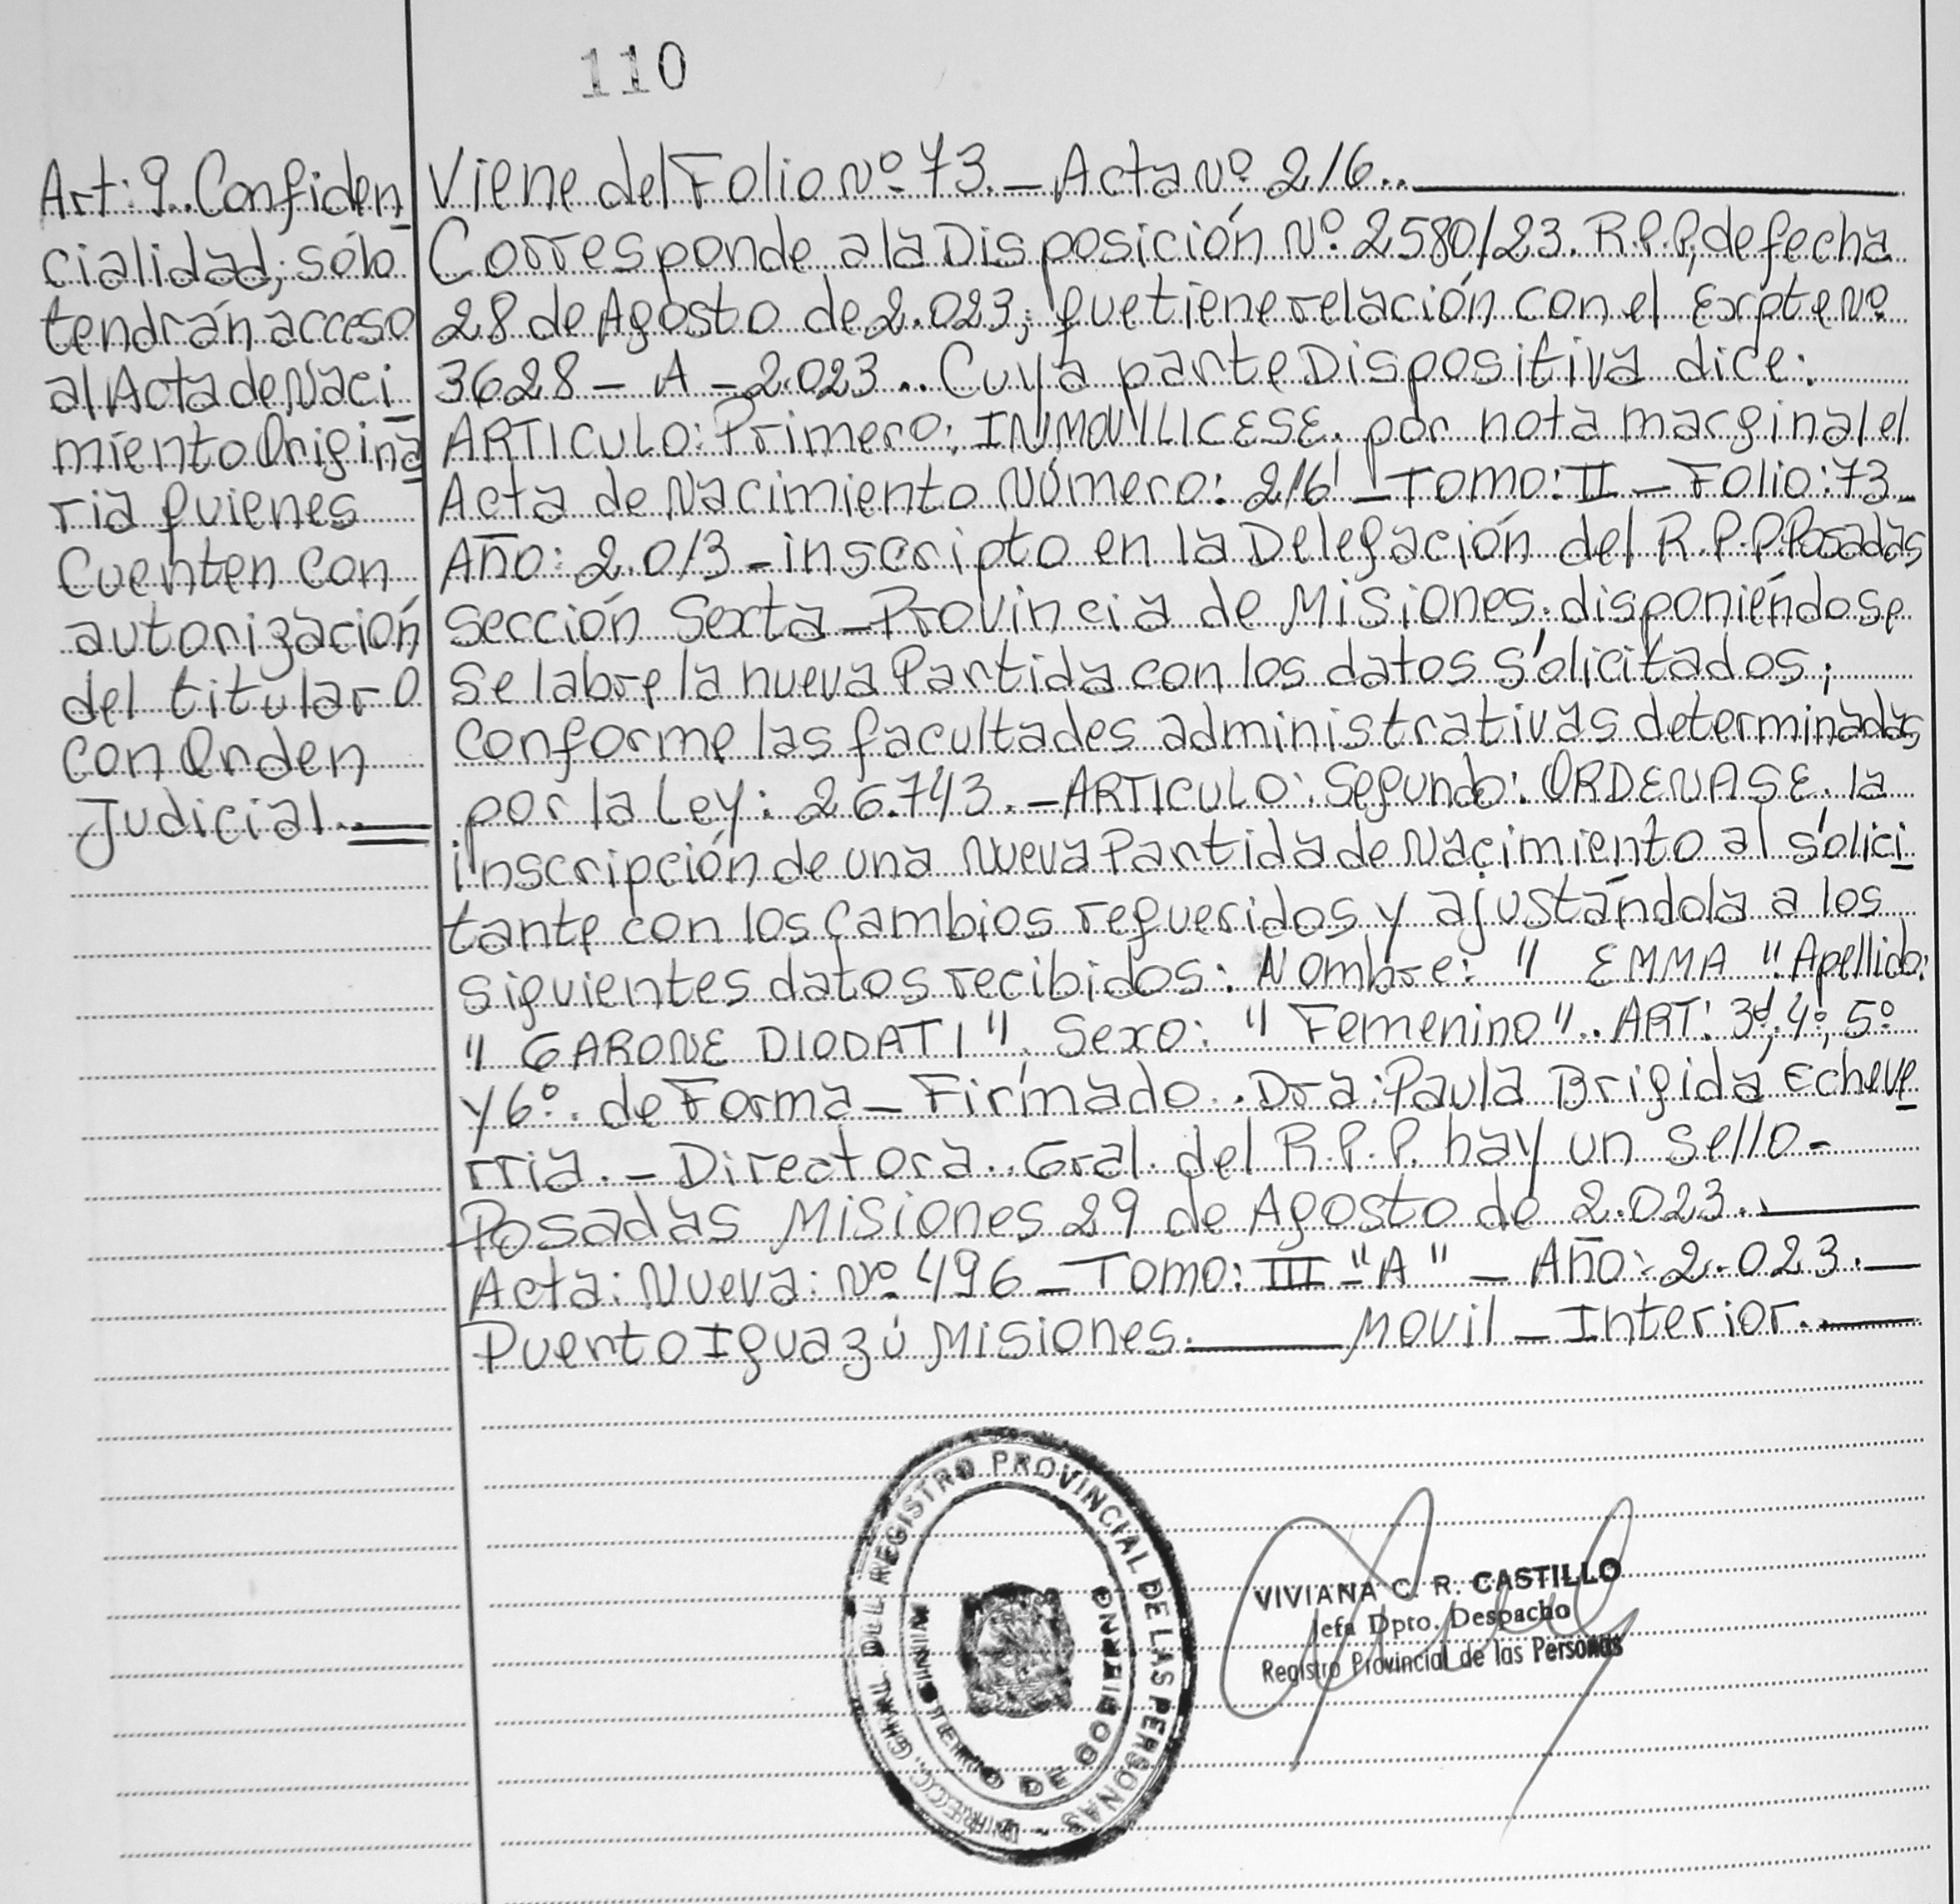 110
Art: 9.. Confiden
cialidad; sólo
tendrán acceso
al Acta de Naci
miento Origina
ria quienes
Cuenten con
autorización
del titular O
con Orden
Judicial..
Viene del Folio Nº 73. - Acta Nº 216..
Corresponde a la Disposición Nº 2580/23. R.P.P, de fecha
28 de Agosto de 2.023; que tiene relación con el Expte Nº
3628 - A - 2.023.. Cuya parte Dispositiva dice:
ARTICULO: Primero: INMOVILICESE. por nota marginal el
Acta de Nacimiento Número: 216 - Tomo: II - Folio: 73 -
Año: 2.013 - inscripto en la Delegación del R.P.P. Posadas
Sección Sexta - Provincia de Misiones. disponiéndose
se labre la nueva Partida con los datos solicitados;
conforme las facultades administrativas determinadas
por la Ley: 26.743. - ARTICULO: Segundo: ORDENASE. la
inscripción de una Nueva Partida de Nacimiento al solici
tante con los cambios requeridos y ajustándola a los
siguientes datos recibidos: Nombre: " EMMA " Apellido:
" GARONE DIODATI ". Sexo: " Femenino ".. ART: 3º, 4º, 5º
y 6º. de Forma - Firmado.. Dra: Paula Brigida Echeve
rria. - Directora.. Gral. del R.P.P. hay un sello -
Posadas Misiones 29 de Agosto de 2.023..
Acta: Nueva: Nº 496 - Tomo: III "A" - Año: 2.023.
Puerto Iguazú Misiones. Movil - Interior..
DIRECC. GRAL DEL REGISTRO PROVINCIAL DE LAS PERSONAS -
MINISTERIO DE GOBIERNO
VIVIANA C. R. CASTILLO
Jefa Dpto. Despacho
Registro Provincial de las Personas